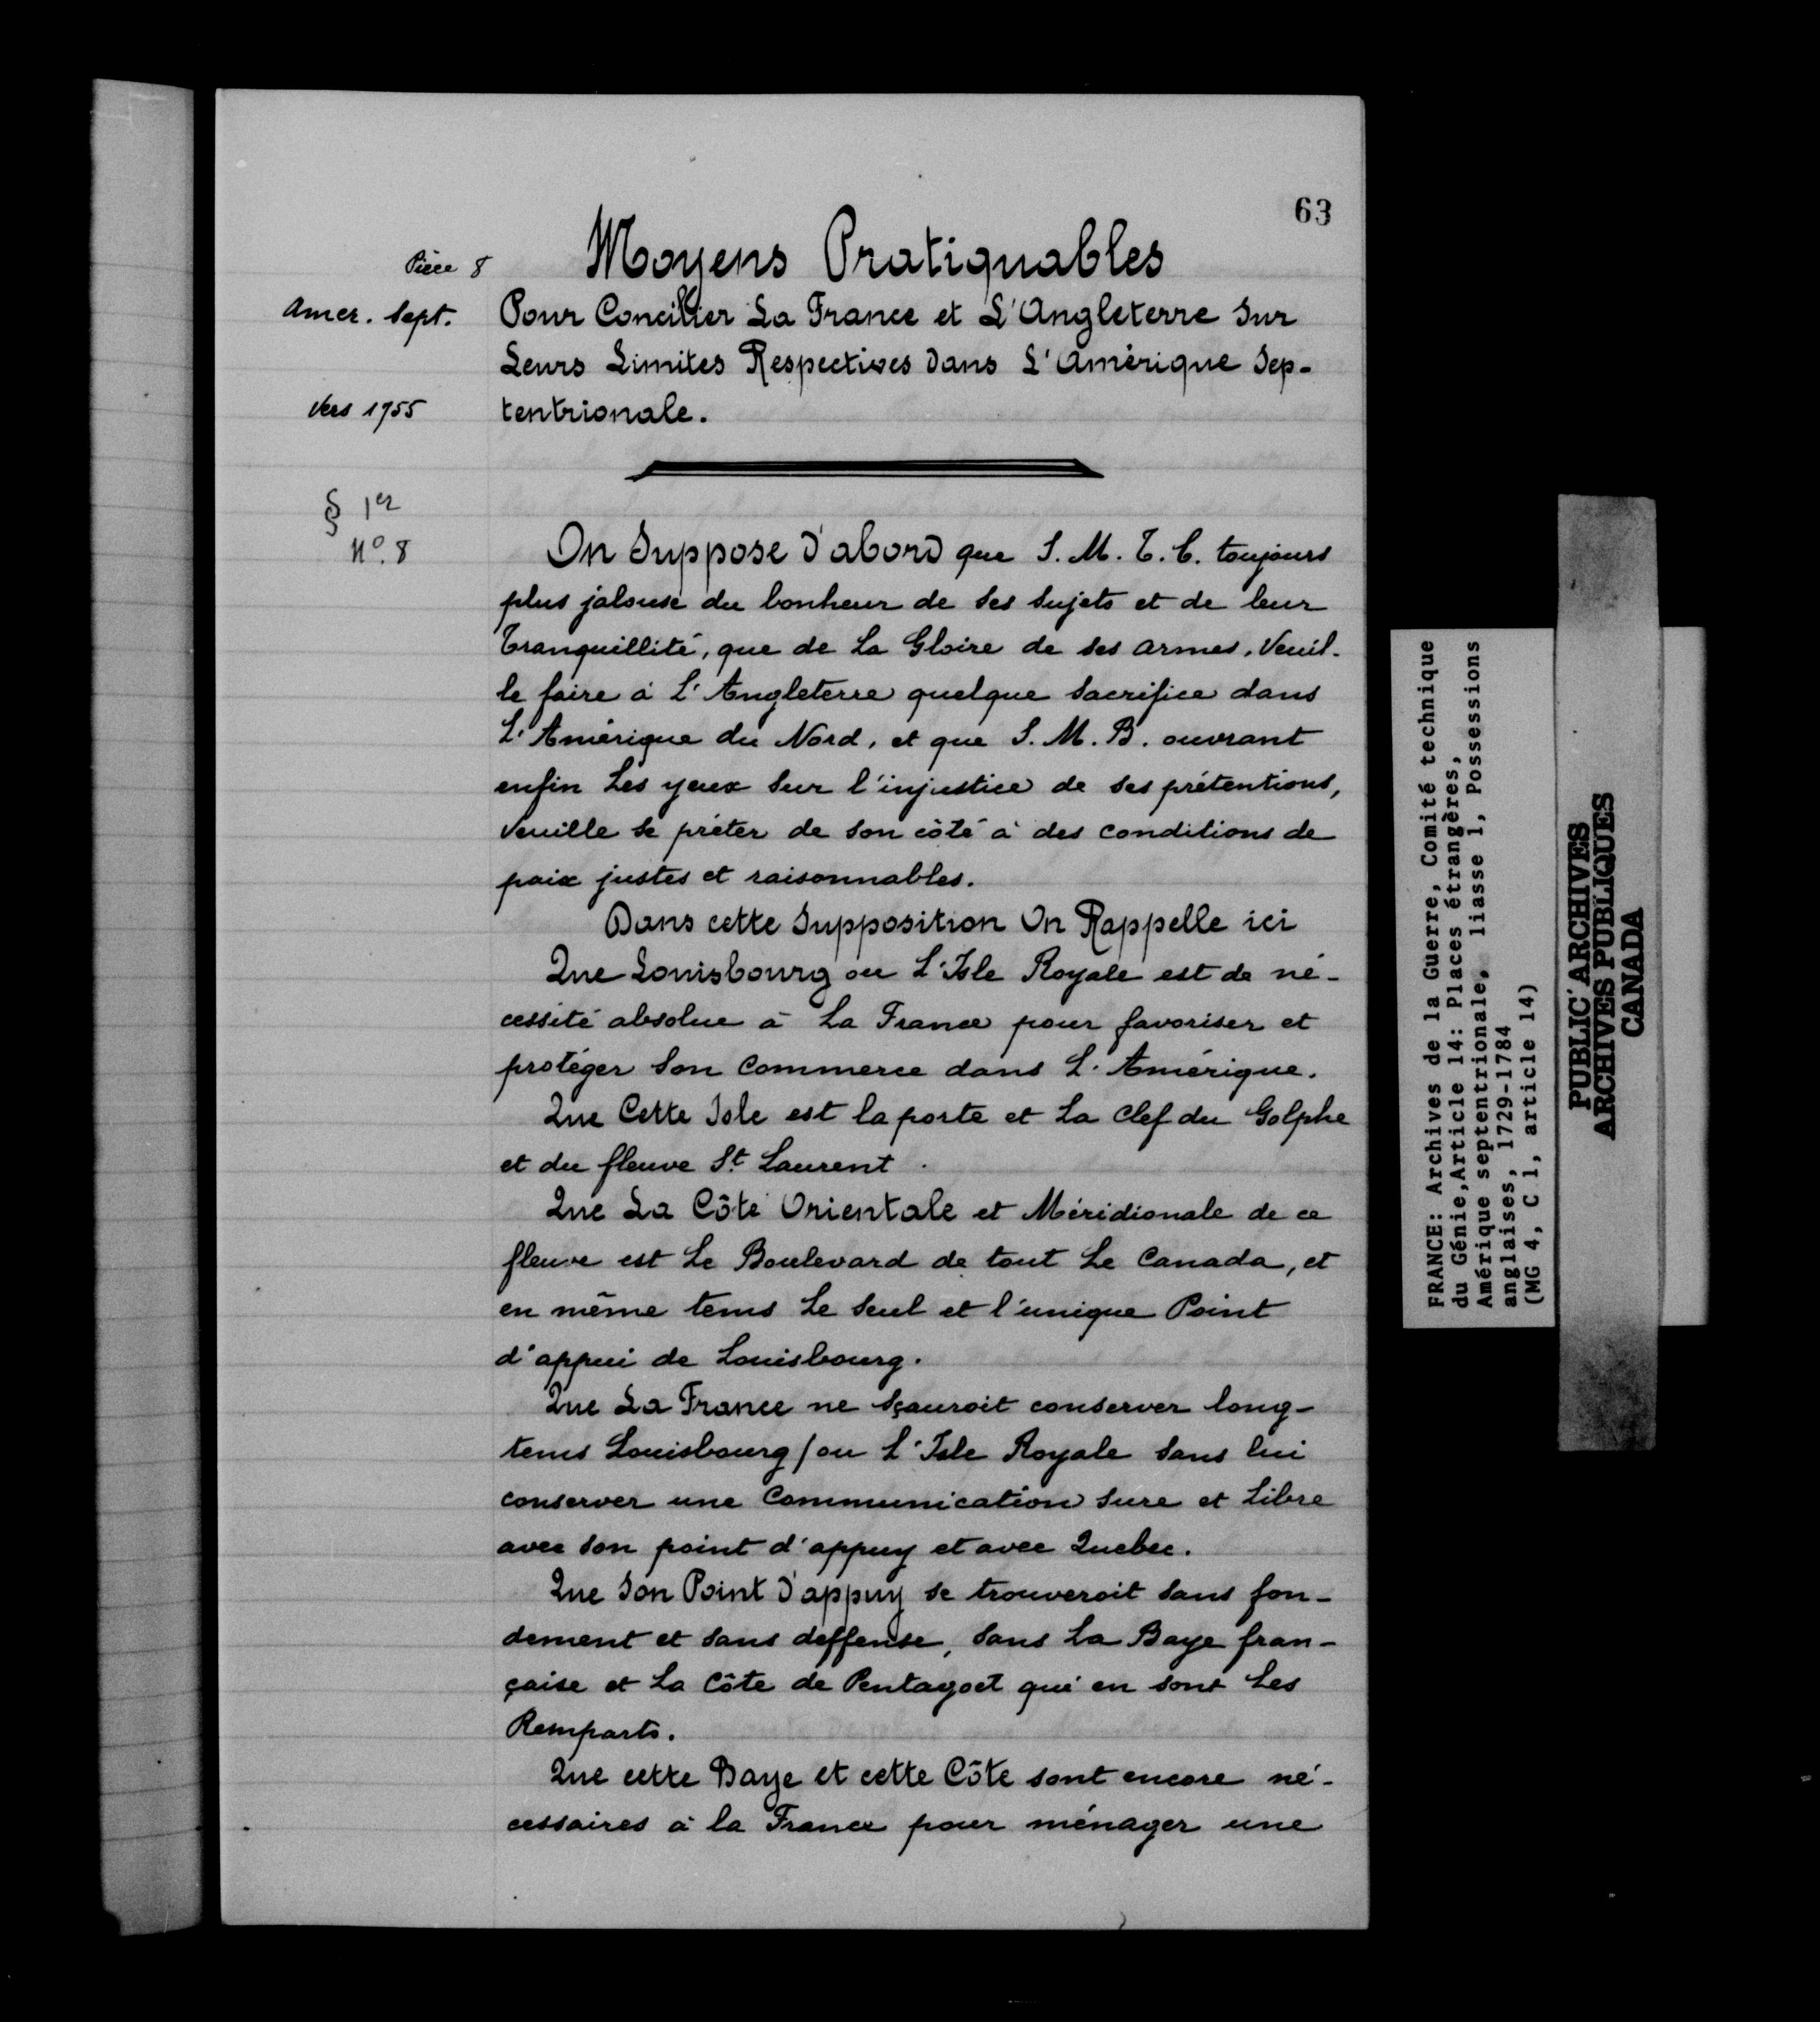 63
Pièce 8
Moyens Pratiquables
Amer. Sept.
Pour Concilier La France et L'Angleterre Sur
Leurs Limites Respectives Dans L'Amérique Sep-
Vers 1755
tentrionale.
§ 1er
No. 8
On Suppose D'abord que S. M. T. C. toujours
plus jalouse du bonheur de ses sujets et de leur
Tranquillité, que de La Gloire de ses armes, Veuil-
le faire à L'Angleterre quelque Sacrifice dans
L'Amérique du Nord, et que S. M. B. ouvrant
enfin Les yeux sur l'injustice de ses prétentions,
Veuille se prêter de son côté à des conditions de
paix justes et raisonnables.
Dans cette Supposition On Rappelle ici
Que Louisbourg ou L'Isle Royale est de né-
cessité absolue à La France pour favoriser et
protéger son Commerce dans L'Amérique.
Que Cette Isle est la porte et La Clef du Golphe
et du fleuve St. Laurent.
Que La Côte Orientale et Méridionale de ce
fleuve est Le Boulevard de tout Le Canada, et
en même tems Le seul et l'unique Point
d'appui de Louisbourg.
Que La France ne sçauroit conserver long-
tems Louisbourg / ou L'Isle Royale sans lui
conserver une Communication sure et Libre
avec son point d'appuy et avec Quebec.
Que Son Point D'appuy se trouveroit sans fon-
dement et sans deffense, sans La Baye fran-
çaise et La Côte de Pentagoet qui en sont Les
Remparts.
Que cette Baye et cette Côte sont encore né-
cessaires à la France pour ménager une
FRANCE: Archives de la Guerre, Comité technique
du Génie,Article 14: Places étrangères,
Amérique septentrionale, liasse 1, Possessions
anglaises, 1729-1784
(MG 4, C 1, article 14)
PUBLIC ARCHIVES
ARCHIVES PUBLIQUES
CANADA